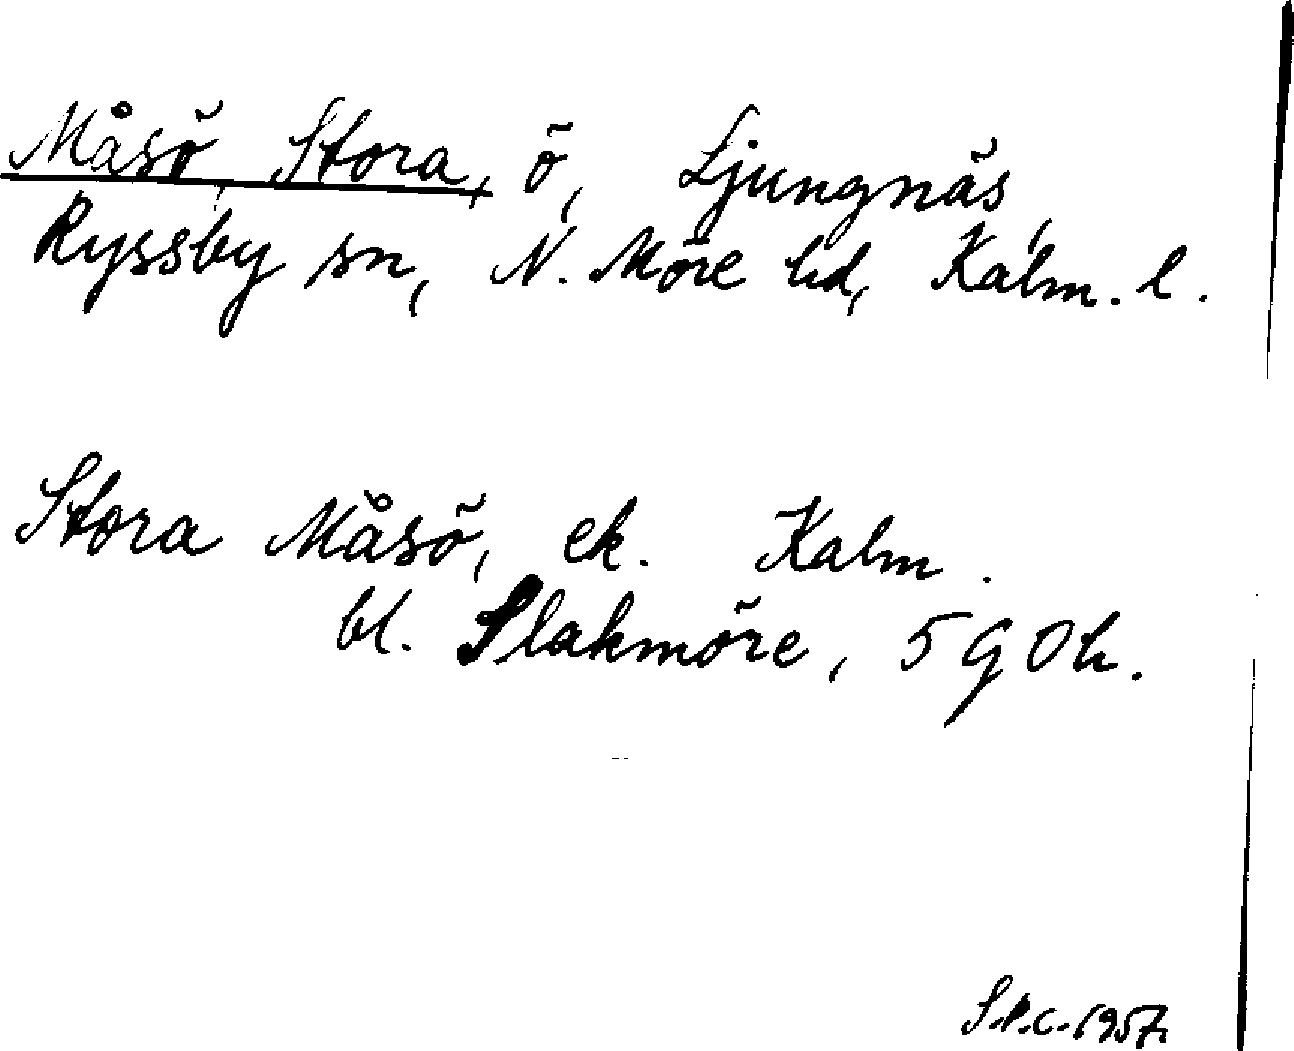 Måsö, Stora, ö, Ljungnäs,
Ryssby sn, N. Möre hd, Kalm. l.
Stora Måsö, ek. Kalm.
bl. Slakmöre, 5 G Oh.
S.P.C. 1957.